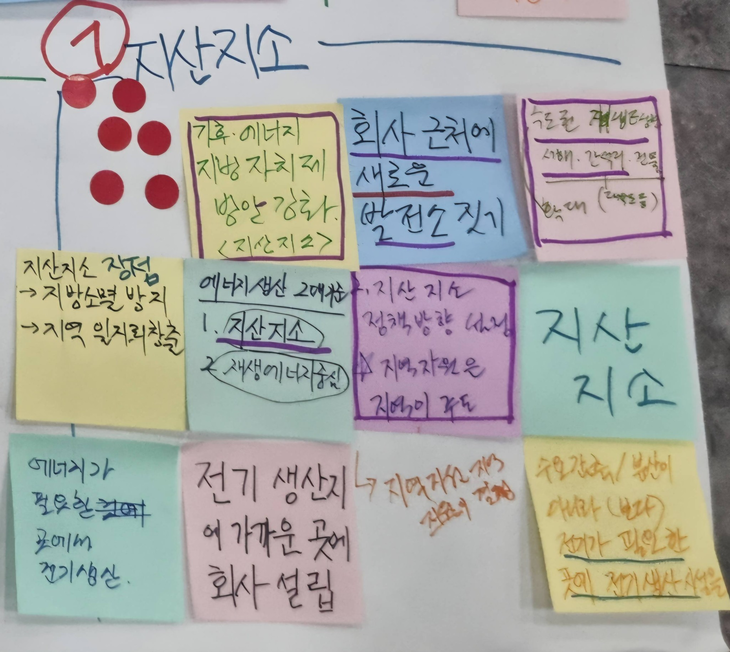 1 지산지소
기후·에너지
지방자치제
방안 강화
<지산지소>
회사 근처에
새로운
발전소 짓기
수도권 재생
서해·간석지·건물
확대 (태양도등)
지산지소 장점
→ 지방소멸 방지
→ 지역 일자리창출
에너지 생산 2대
1. 지산지소
2. 재생에너지중심
지산지소
정책방향
지역자원은
지역이 주도
지산
지소
에너지가
필요한
곳에서
전기생산.
전기 생산지
에 가까운 곳에
회사 설립
↳ 지역자산
분산이
아니라 (보다)
전기가 필요한
곳에 전기생산시설을